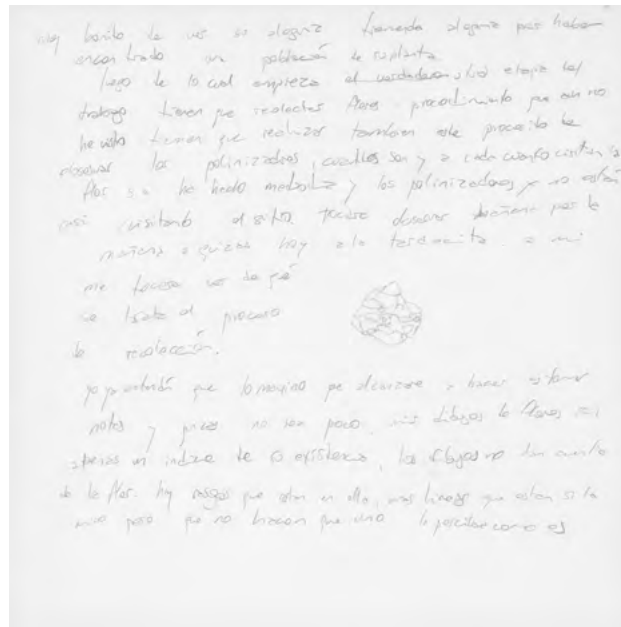 muy bonito de ver es alegria tremenda alegria pues haber
encontrado un población de su planta
luego de lo cual empieza el verdadero etapa del
trabajo tienen que recolectar flores procedimiento que aun no
he visto tienen que realizar tambien este procesito de
observar los polinizadores, cuales son y a cada cuanto visitan la
flor ya ha hecho mediodia y los polinizadores ya no están
casi visitando el sitio tocara observar mañana por la
mañana o quizas hoy a la tardecita a mi
me tocara ver de qué
se trata el proceso
de recolección.
yo ya entendí que lo maximo que alcanzare a hacer es tomar
notas y pues no son poco mis dibujos de flores
apenas un indice de su existencia, los dibujos no dan cuenta
de la flor. hay rasgos que estan en ella, unas lineas que estan si la
miro pero que no hacen que uno la perciba como es